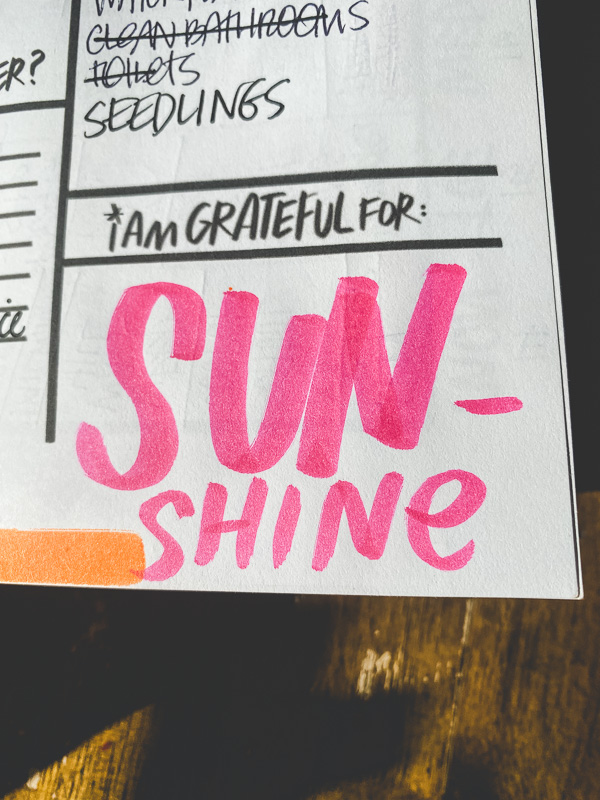 CLEAN BATHROOMS
TOILETS
SEEDLINGS
ER?
*iAM GRATEFUL FOR:
SUN-
SHINE